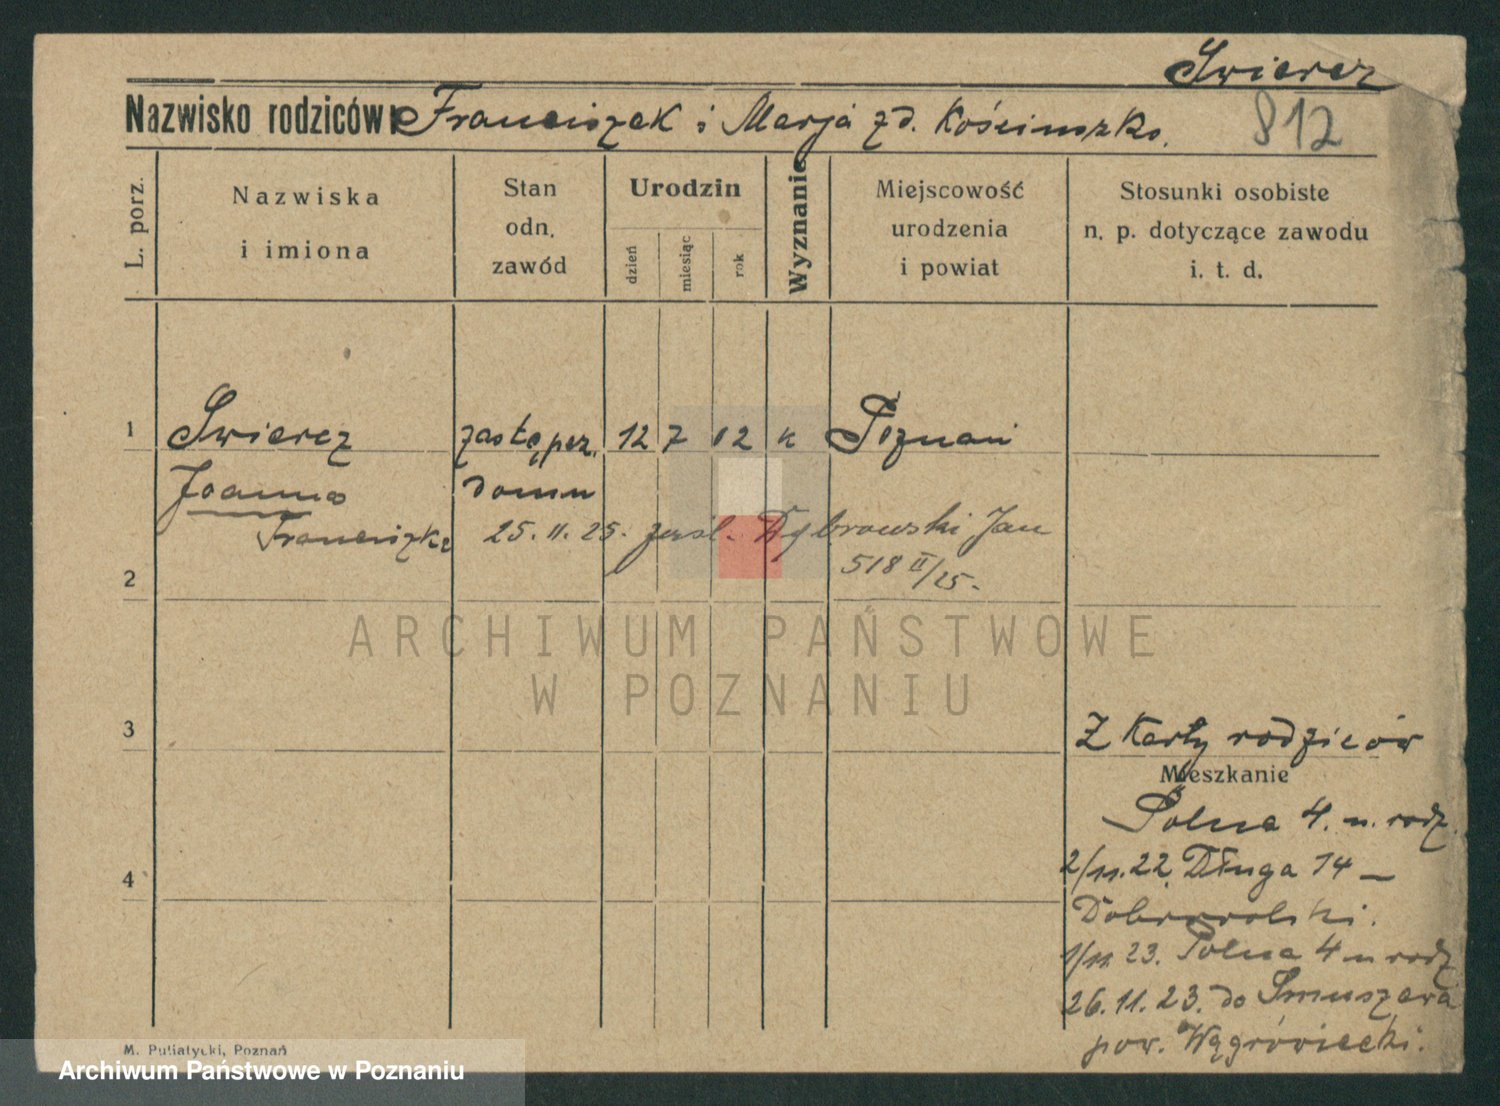 Swiercz
Nazwisko rodziców: Franciszek i Marja zd. Kościuszko.
812
L. porz.
Nazwiska
i imiona
Stan
odn.
zawód
Urodzin
dzień
miesiąc
rok
Wyznanie
Miejscowość
urodzenia
i powiat
Stosunki osobiste
n. p. dotyczące zawodu
i. t. d.
1 Swiercz zastę. pcz. 12 7 02 k Poznań
Joanna domu
Franciszka 25. 11. 25. zaśl. Dąbrowski Jan
518 II/25.
2
ARCHIWUM PAŃSTWOWE
W POZNANIU
3
Z Karty rodziców
Mieszkanie
Polna 4. u. rodz.
2/11. 22. Długa 14 —
4
Dobrowolski.
1/11. 23. Polna 4 u rodz
26. 11. 23. do Smuszewa
pow. Wągrówiecki.
M. Putiatycki, Poznań
Archiwum Państwowe w Poznaniu